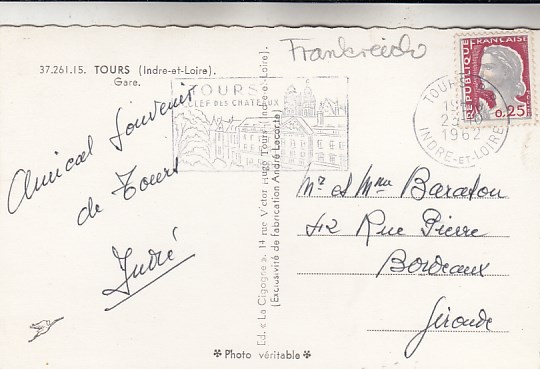 Frankreich
37.261.15. TOURS (Indre-et-Loire).
Gare.
TOURS
CLEF DES CHATEAUX
REPUBLIQUE FRANÇAISE
0,25
TOURS
23
1962
INDRE-ET-LOIRE
Amical Souvenir
de Tours
André
Ed. « La Cigogne », 14 rue Victor Hugo Tours (Indre-et-Loire).
(Exclusivité de fabrication André Leconte)
Mr et Mme Baraton
42 Rue Pierre
Bordeaux
Gironde
* Photo véritable *